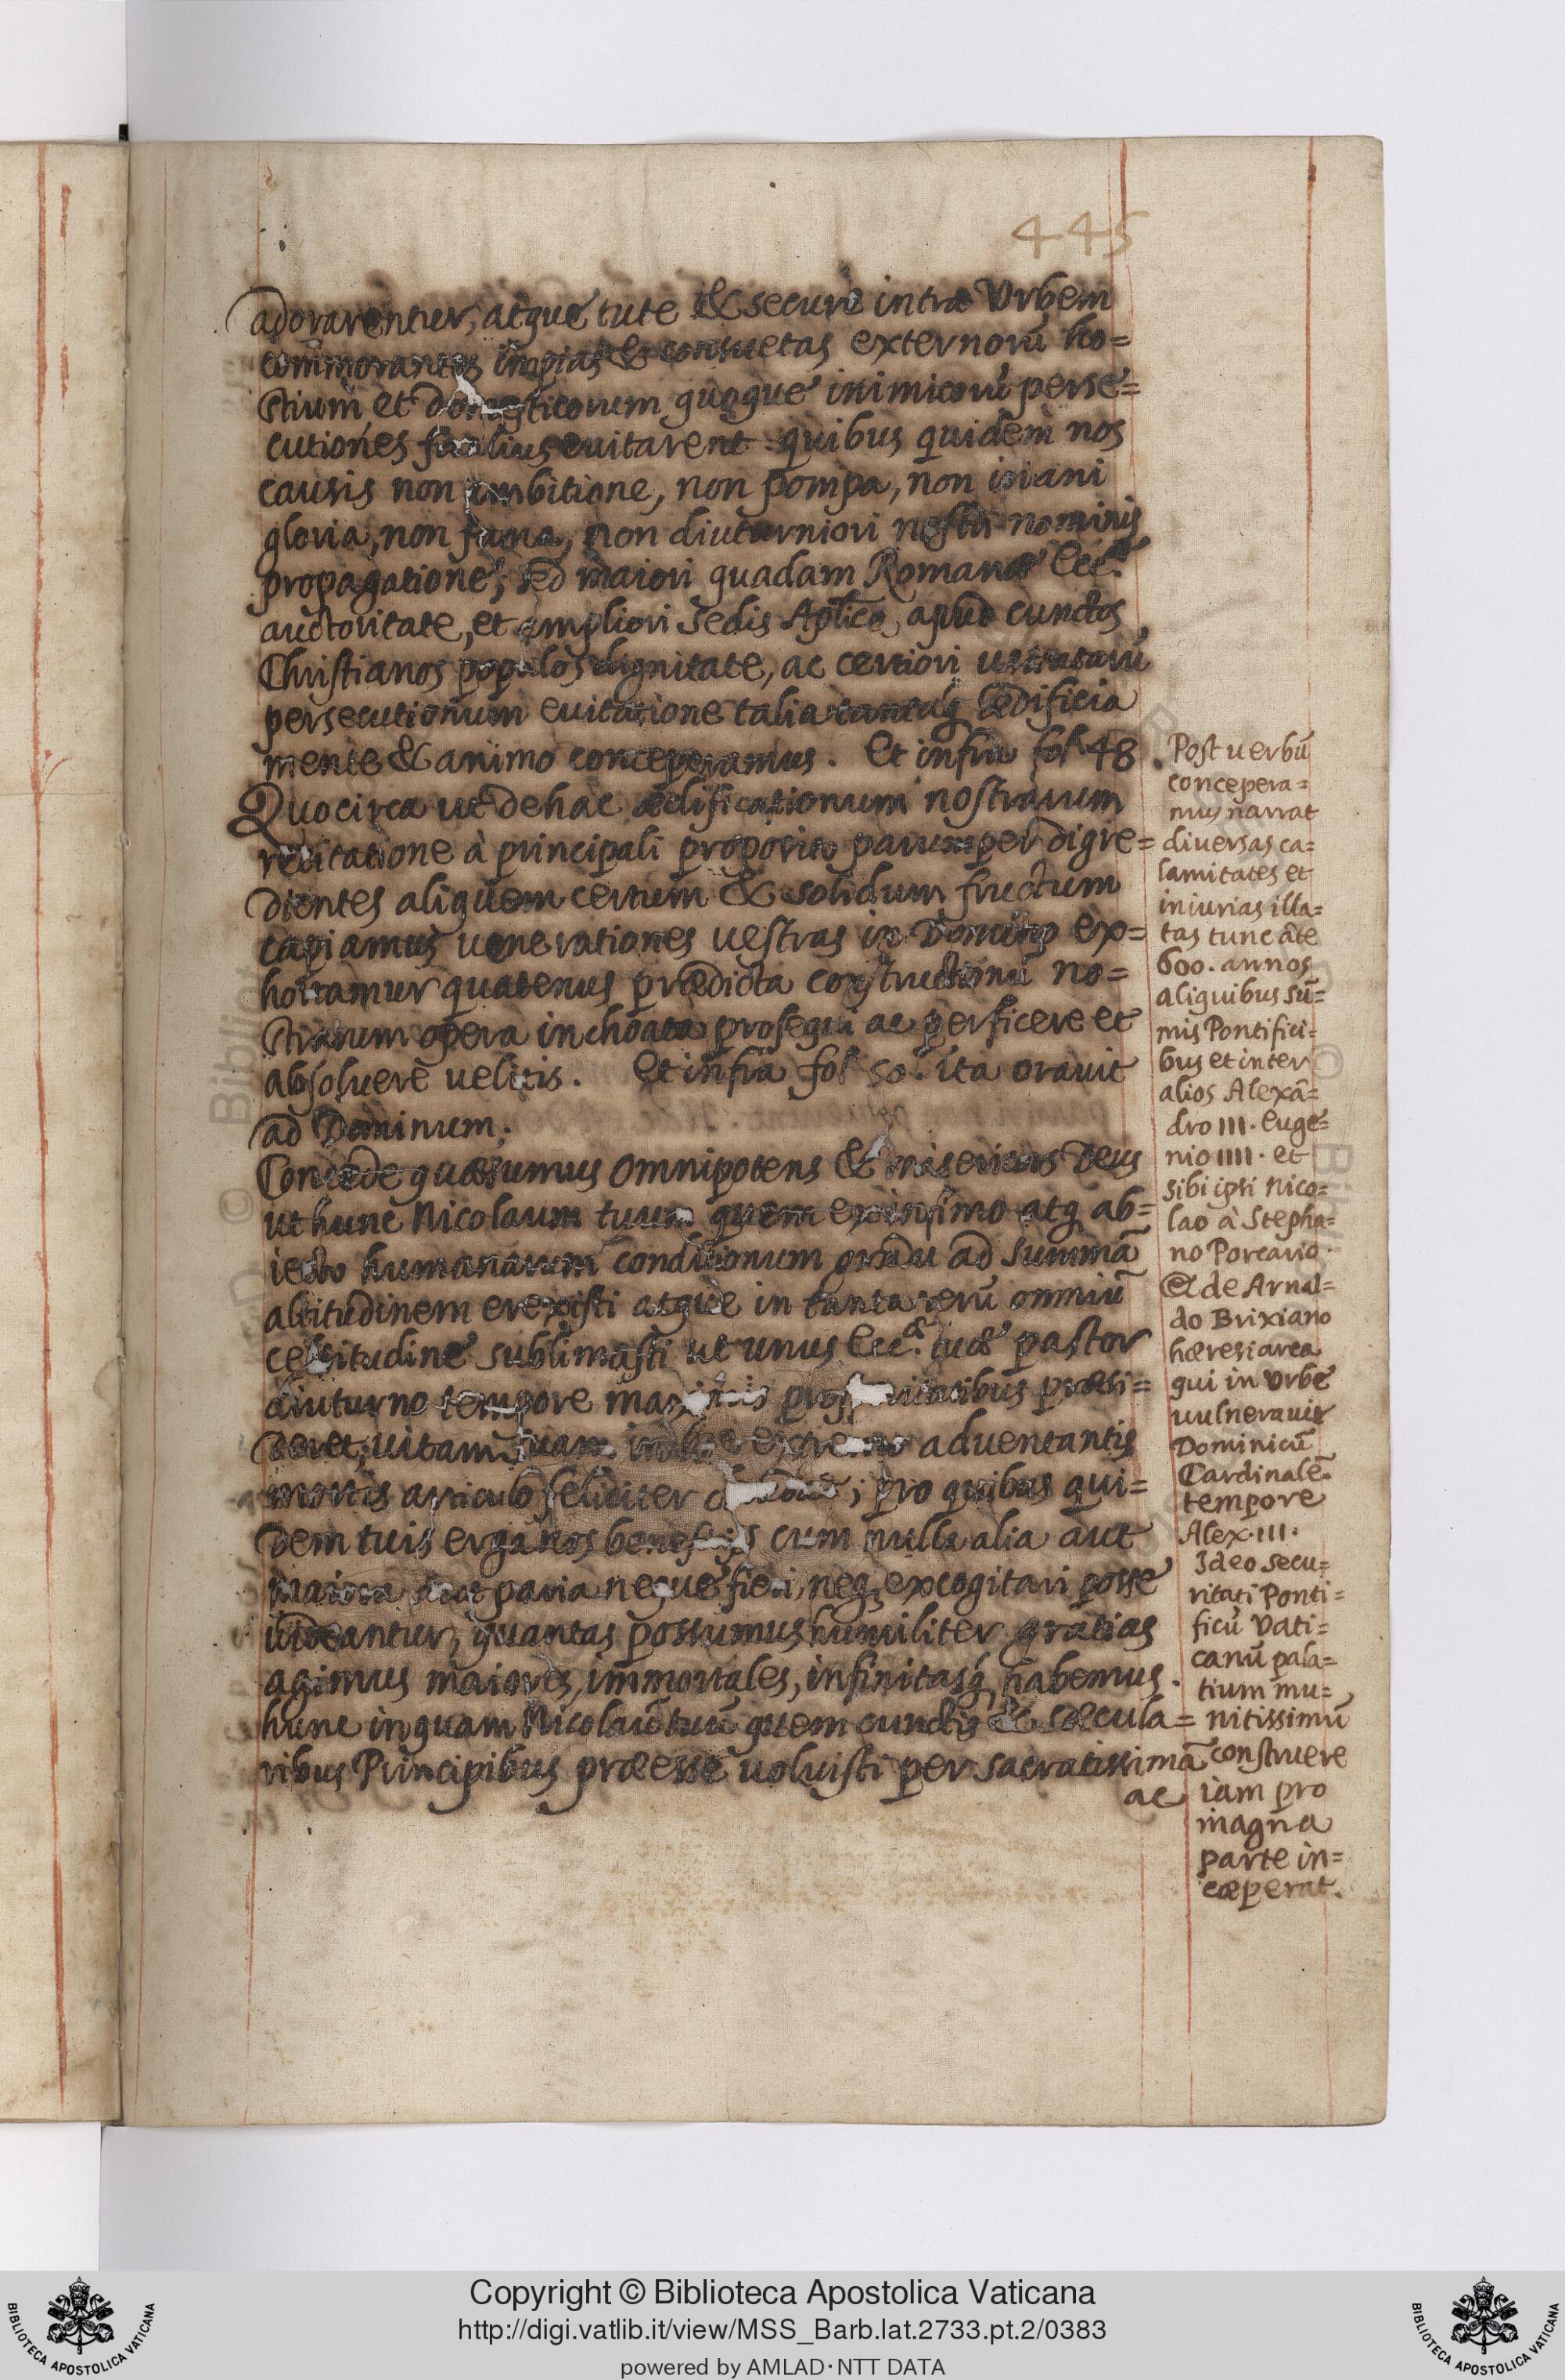 445
adorarentur, atque tute & secure intra Vrbem
commorantes impias & consuetas externorũ ho=
stium et domesticorum quoque inimicorũ perse=
cutiones facilius euitarent. quibus quidem nos
causis non ambitione, non pompa, non inani
gloria, non fama, non diuturniori nostri nominis
propagatione, sed maiori quadam Romanæ Eccæ
auctoritate, et ampliori Sedis Aplicæ apud cunctos
Christianos populos dignitate, ac certiori usitatarũ
persecutionum euitatione talia tantaq ædificia
mente & animo conceperamus. Et infra fol 48.
Quocirca ut de hac ædificationum nostrarum
recitatione à principali proposito parumper digre=
dientes aliquem certum & solidum fructum
capiamus uenerationes uestras in Domino ex=
hortamur quatenus prædicta constructionũ no=
strarum opera inchoata prosequi ac perficere et
absoluere uelitis. Et infra fol 50. ita orauit
ad Dominum.
Concede quæsumus omnipotens & misericors Deus
ut hunc Nicolaum tuum quem ex infimo atq ab=
iecto humanarum conditionum gradu ad summã
altitudinem erexisti atque in tanta rerũ omniũ
celsitudine sublimasti ut unus Eccæ tuæ pastor
diuturno tempore maximis prosperitatibus præsi=
deret, uitam suam in hoc extremo aduentantis
mortis articulo feliciter ; pro quibus qui=
dem tuis erga nos beneficijs cum nulla alia aut
maiora aut paria neque fieri, neq excogitari posse
uideantur, quantas possumus humiliter gratias
agimus maiores, immortales, infinitasq habemus.
hunc inquam Nicolaũ tuũ quem cunctis & sæcula=
ribus Principibus præesse uoluisti per sacratissimã
ac
Post uerbũ
concepera=
mus narrat
diuersas ca=
lamitates et
iniurias illa=
tas tunc ãte
600. annos
aliquibus sũ=
mis Pontifici=
bus et inter
alios Alexã=
dro III. Euge=
nio IIII. et
sibi ipsi Nico=
lao à Stepha=
no Porcario.
& de Arnal=
do Brixiano
hæresiarca
qui in Vrbe
uulnerauit
Dominicũ
Cardinalẽ
tempore
Alex. III.
Ideo secu=
ritati Ponti=
ficũ Vati=
canũ pala=
tium mu=
nitissimũ
construere
iam pro
magna
parte in=
cæperat.
Copyright © Biblioteca Apostolica Vaticana
http://digi.vatlib.it/view/MSS_Barb.lat.2733.pt.2/0383
powered by AMLAD·NTT DATA
BIBLIOTECA APOSTOLICA VATICANA
BIBLIOTECA APOSTOLICA VATICANA